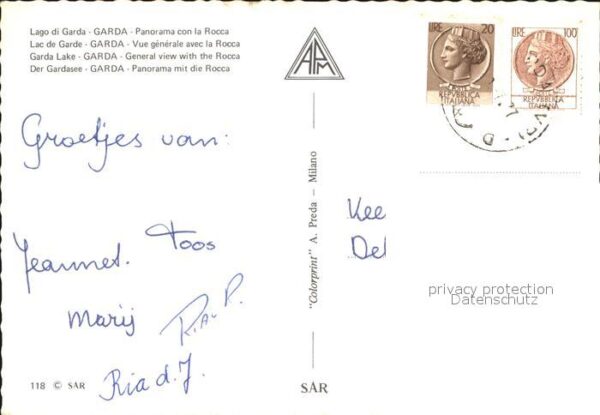 Lago di Garda - GARDA - Panorama con la Rocca
Lac de Garde - GARDA - Vue générale avec la Rocca
Garda Lake - GARDA - General view with the Rocca
Der Gardasee - GARDA - Panorama mit die Rocca
APM
LIRE 20
REPVBBLICA
ITALIANA
LIRE 100
REPVBBLICA
ITALIANA
Groetjes van:
Toos
Jeannet.
Marij
Ria d. J.
118 © SAR
"Colorprint" A. Preda - Milano
SAR
Kee
Del
privacy protection
Datenschutz